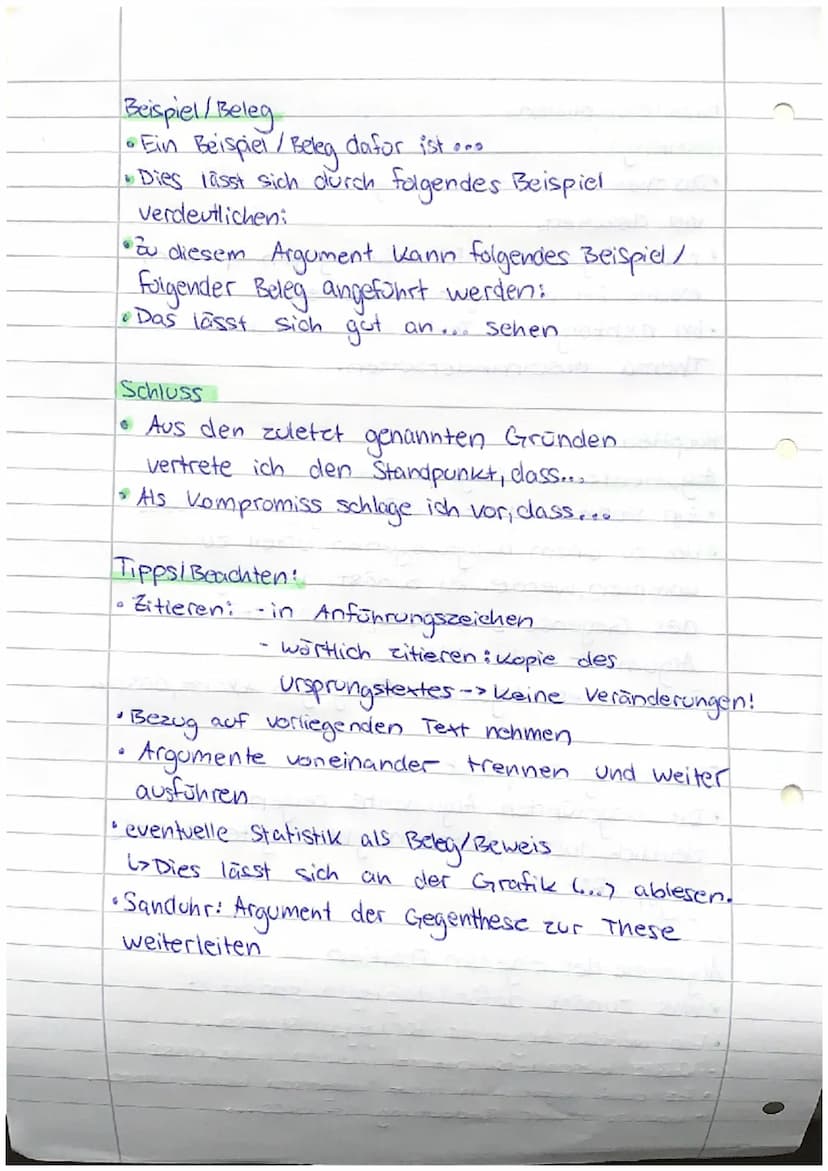 Beispiel/Beleg
• Ein Beispiel/Beleg dafür ist...
• Dies lässt sich durch folgendes Beispiel
verdeutlichen:
• Zu diesem Argument kann folgendes Beispiel/
folgender Beleg angeführt werden:
• Das lässt sich gut an... sehen
Schluss
• Aus den zuletzt genannten Gründen
vertrete ich den Standpunkt, dass...
• Als Kompromiss schlage ich vor, dass...
Tipps/Beachten:
• Zitieren: - in Anführungszeichen
- wörtlich zitieren: Kopie des
Ursprungstextes -> keine Veränderungen!
• Bezug auf vorliegenden Text nehmen
• Argumente voneinander trennen und weiter
ausführen
• eventuelle Statistik als Beleg/Beweis
↳ Dies lässt sich an der Grafik (...) ablesen.
• Sanduhr: Argument der Gegenthese zur These
weiterleiten